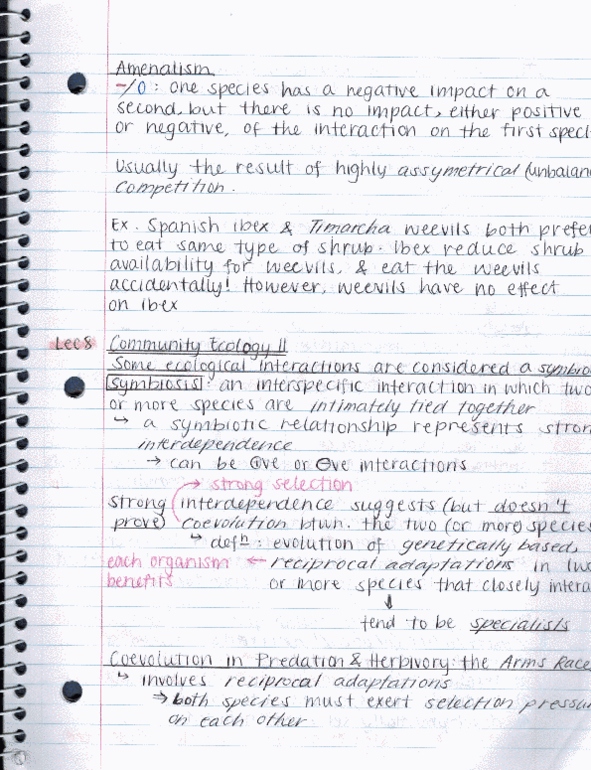 Amenalism
-/0: one species has a negative impact on a
second, but there is no impact, either positive
or negative, of the interaction on the first speci
Usually the result of highly assymetrical (unbalan
competition.
Ex. Spanish ibex & Timarcha weevils both prefe
to eat same type of shrub. Ibex reduce shrub
availability for weevils, & eat the weevils
accidentally! However, weevils have no effect
on ibex
Lec 8 Community Ecology II
Some ecological interactions are considered a symbio
symbiosis: an interspecific interaction in which two
or more species are intimately tied together
↳ a symbiotic relationship represents stron
interdependence
→ can be ⊕ve or ⊖ve interactions
→ strong selection
strong interdependence suggests (but doesn't
prove) coevolution btwn. the two (or more) species
↳ defⁿ: evolution of genetically based,
each organism ← reciprocal adaptations in two
benefits or more species that closely intera
↓
tend to be specialists
Coevolution in Predation & Herbivory: the Arms Race
↳ involves reciprocal adaptations
⇒ both species must exert selection pressu
on each other